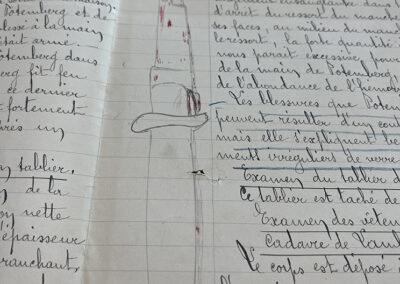 Potemberg et de
blessé à la main
était armé
Potemberg dans
berg fit feu
ce dernier
fortement
après un
tablier.
de la
nette
d'épaisseur
tranchant,
d'arrêt du ressort du manche
ses faces, au milieu du manche
le ressort, la forte quantité
nous paraît excessive, pour
de la main de Potemberg
de l'abondance de l'hémor
Les blessures que Potem
peuvent résulter d'un cout
mais elle s'expliquent
ments irréguliers de verre
Examen du tablier d
Ce tablier est taché de
Examen des vêtem
Cadavre de
Le corps est déposé